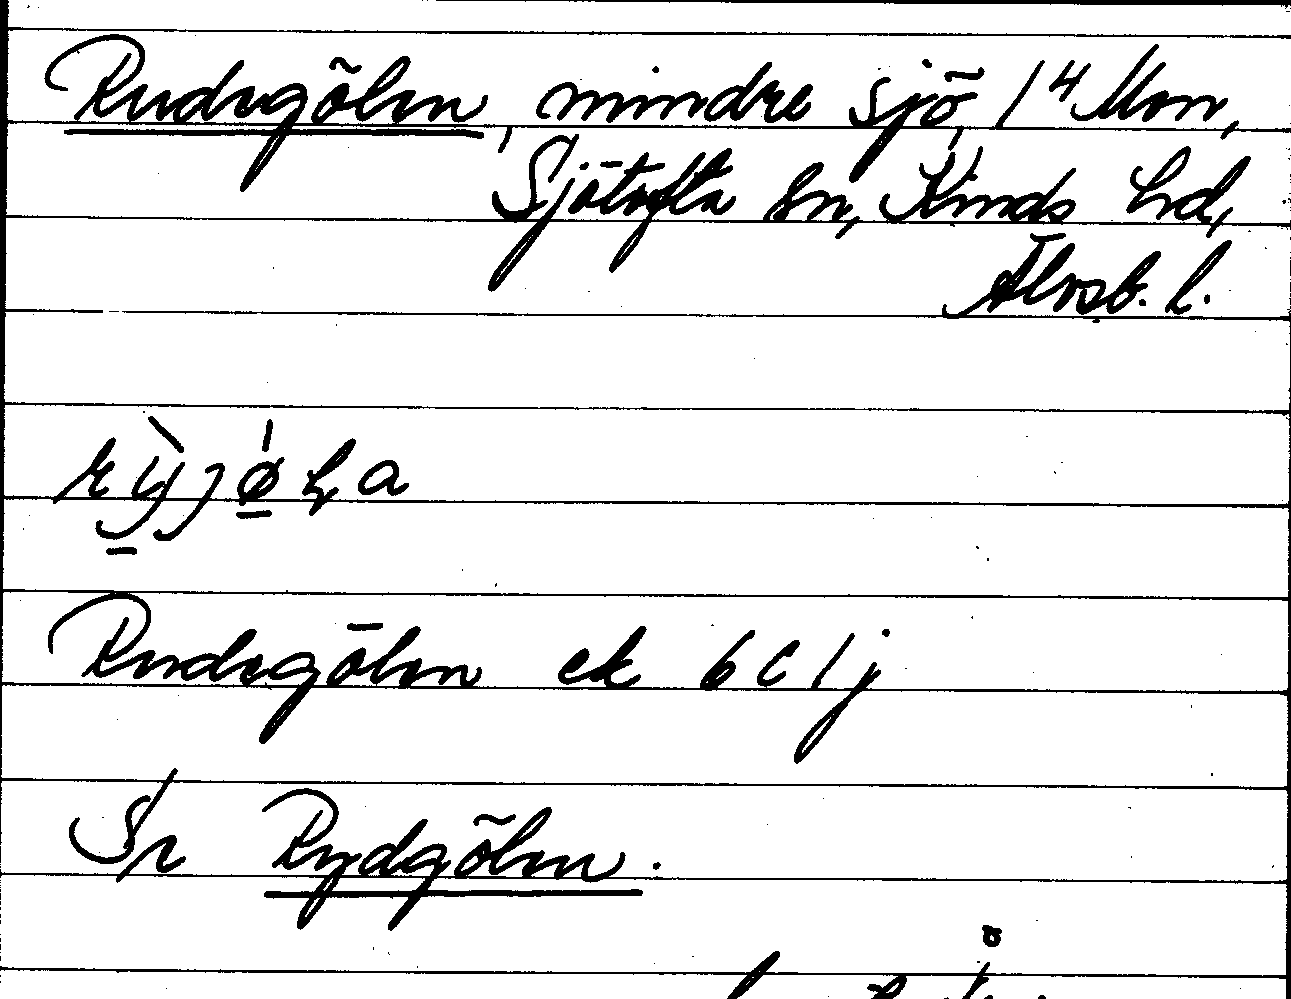 Rudegölen, mindre sjö, 14 Mon,
Sjötofta sn, Kinds hd,
Älvsb. l.
Rudegölen ek 6C1j
Sr Rydgölen.